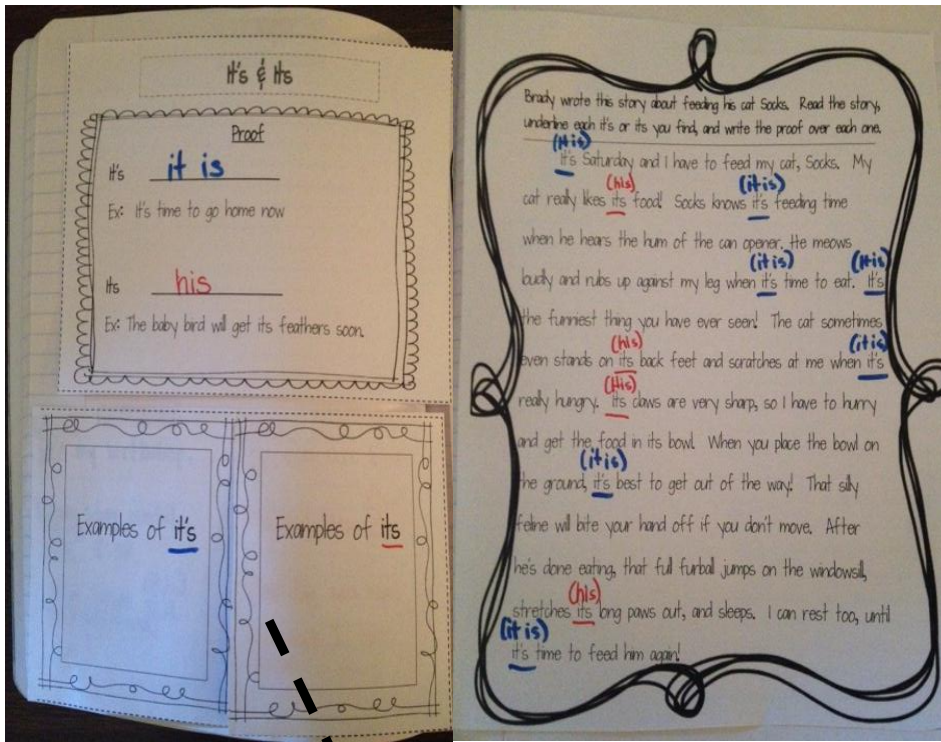 It's & Its
Proof
It's it is
Ex: It's time to go home now
Its his
Ex: The baby bird will get its feathers soon.
Examples of it's
Examples of its
Brady wrote this story about feeding his cat Socks. Read the story,
underline each it's or its you find, and write the proof over each one.
(It is)
It's Saturday and I have to feed my cat, Socks. My
(his) (it is)
cat really likes its food! Socks knows it's feeding time
when he hears the hum of the can opener. He meows
(it is) (It is)
loudly and rubs up against my leg when it's time to eat. It's
the funniest thing you have ever seen! The cat sometimes
(his) (it is)
even stands on its back feet and scratches at me when it's
(His)
really hungry. Its claws are very sharp, so I have to hurry
and get the food in its bowl. When you place the bowl on
(it is)
the ground, it's best to get out of the way! That silly
feline will bite your hand off if you don't move. After
he's done eating, that full furball jumps on the windowsill,
(his)
stretches its long paws out, and sleeps. I can rest too, until
(it is)
it's time to feed him again!